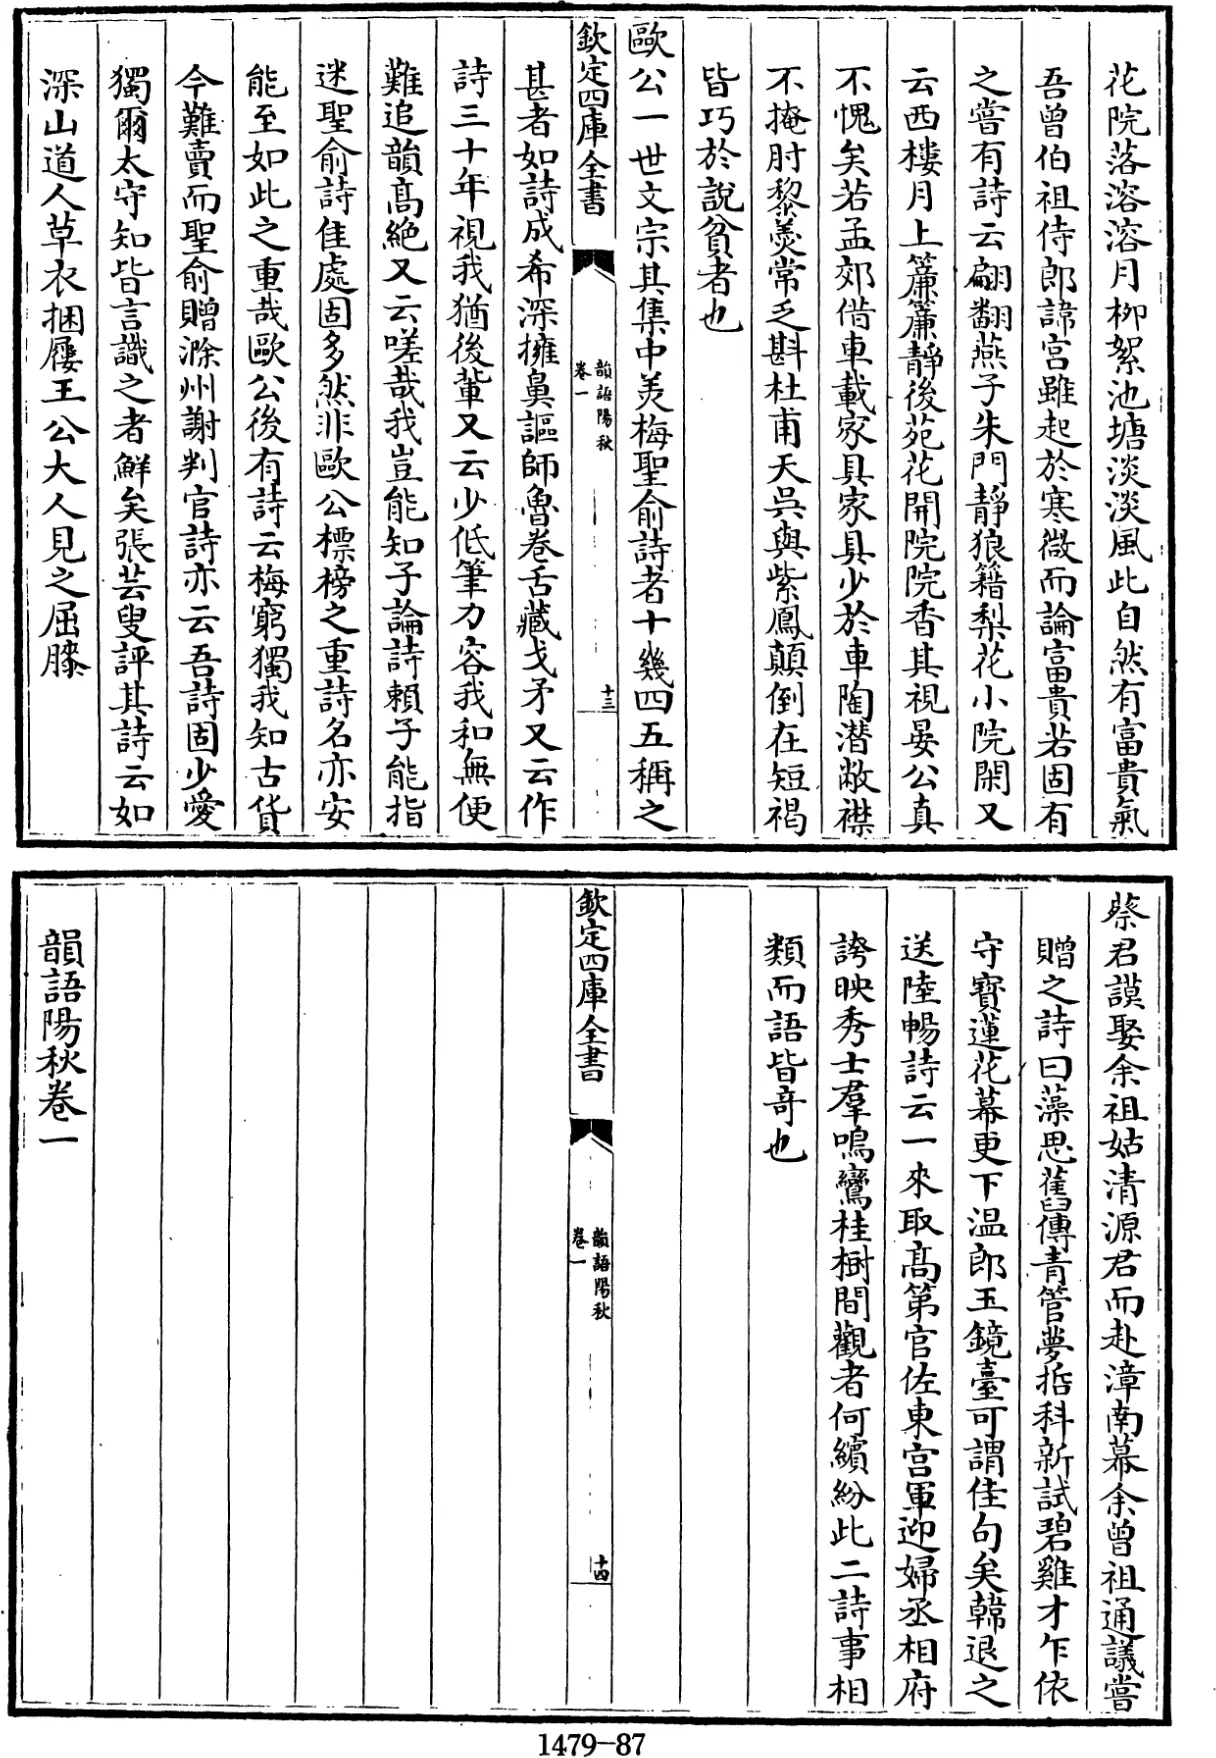 花院落溶溶月柳絮池塘淡淡風此自然有富貴氣
吾曾伯祖侍郎諱宫雖起於寒微而論富貴若固有
之嘗有詩云翩翻燕子朱門靜狼籍梨花小院閑又
云西樓月上簾簾靜後苑花開院院香其視晏公真
不愧矣若孟郊借車載家具家具少於車陶潜敝襟
不掩肘藜羮常乏斟杜甫天吳與紫鳳顛倒在短褐
皆巧於說貧者也
歐公一世文宗其集中美梅聖俞詩者十幾四五稱之
欽定四庫全書
韻語陽秋
卷一
十三
甚者如詩成希深擁鼻謳師魯卷舌藏戈矛又云作
詩三十年視我猶後輩又云少低筆力容我和無使
難追韻髙絶又云嗟哉我豈能知子論詩賴子能指
迷聖俞詩佳處固多然非歐公標榜之重詩名亦安
能至如此之重哉歐公後有詩云梅窮獨我知古貨
今難賣而聖俞贈滁州謝判官詩亦云吾詩固少愛
獨爾太守知皆言識之者鮮矣張芸叟評其詩云如
深山道人草衣捆屨王公大人見之屈膝
蔡君謨娶余祖姑清源君而赴漳南幕余曾祖通議嘗
贈之詩曰藻思舊傳青管夢括科新試碧雞才乍依
守寶蓮花幕更下温郎玉鏡臺可謂佳句矣韓退之
送陸暢詩云一來取髙第官佐東宫軍迎婦丞相府
誇映秀士羣鳴鸞桂樹間觀者何繽紛此二詩事相
類而語皆竒也
欽定四庫全書
韻語陽秋
卷一
十四
韻語陽秋卷一
1479-87